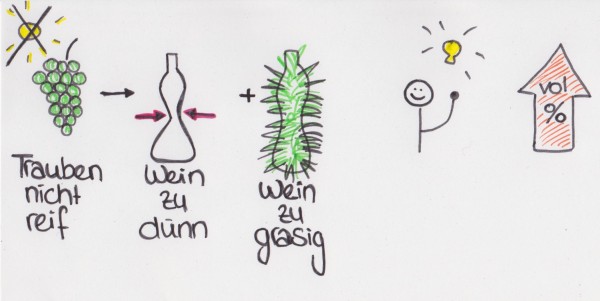 Trauben
nicht
reif
Wein
zu
dünn
+
Wein
zu
grasig
vol
%